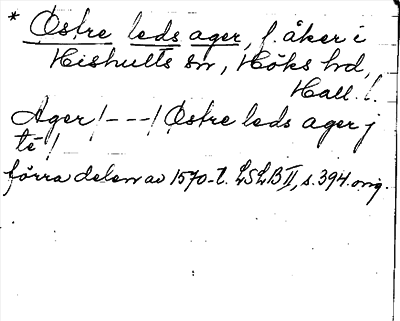 * Østre leds ager, f. åker i
Hishults sn, Höks hd,
Hall. l.
Ager! --- ! Østre leds ager j
te!
förra delen av 1570-t. LSLB II, s. 394. orig.